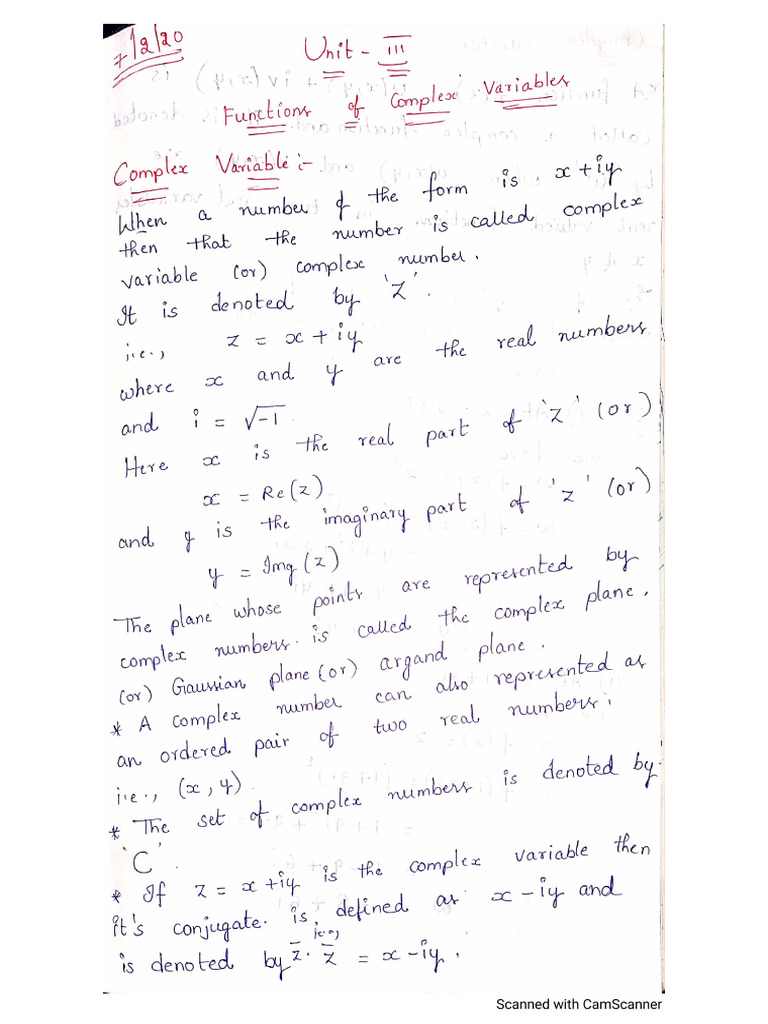 7/2/20
Unit - III
Functions of Complex Variables
Complex Variable :-
When a number of the form is x+iy
then that the number is called complex
variable (or) complex number.
It is denoted by 'Z'.
i.e., z = x + iy
where x and y are the real numbers
and i = √-1.
Here x is the real part of 'z' (or)
x = Re(z)
and y is the imaginary part of 'z' (or)
y = Img(z)
The plane whose points are represented by
complex numbers. is called the complex plane.
(or) Gaussian plane (or) argand plane.
* A complex number can also represented as
an ordered pair of two real numbers.
i.e., (x, y).
* The set of complex numbers is denoted by
'C'.
* If z = x+iy is the complex variable then
it's conjugate. is defined as x-iy and
is denoted by z̄. i.e., z̄ = x-iy.
Scanned with CamScanner